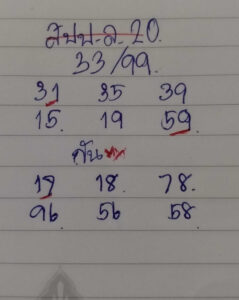 สปป.ล.20.
33/99.
31 35 39
15. 19 59.
กัน
19 18. 78.
96 56 58.